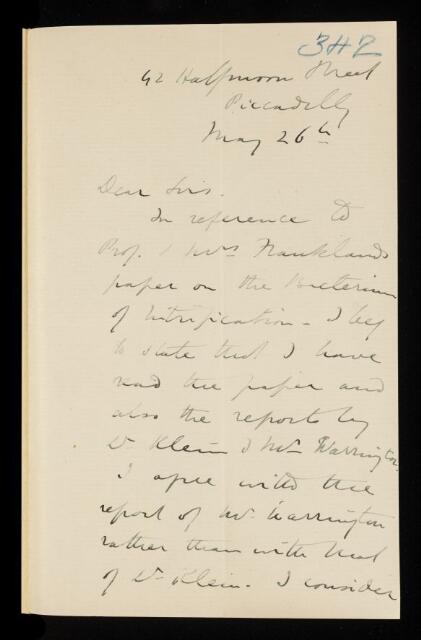 342
42 Halfmoon Street
Piccadilly
May 26th
Dear Sirs.
In reference to
Prof. & Mrs Franklands
paper on the Bacterium
of Nitrification - I beg
to state that I have
read the paper and
also the reports by
Dr Klein & Mr Warrington.
I agree with the
report of Mr Warrington
rather than with that
of Dr Klein. I consider